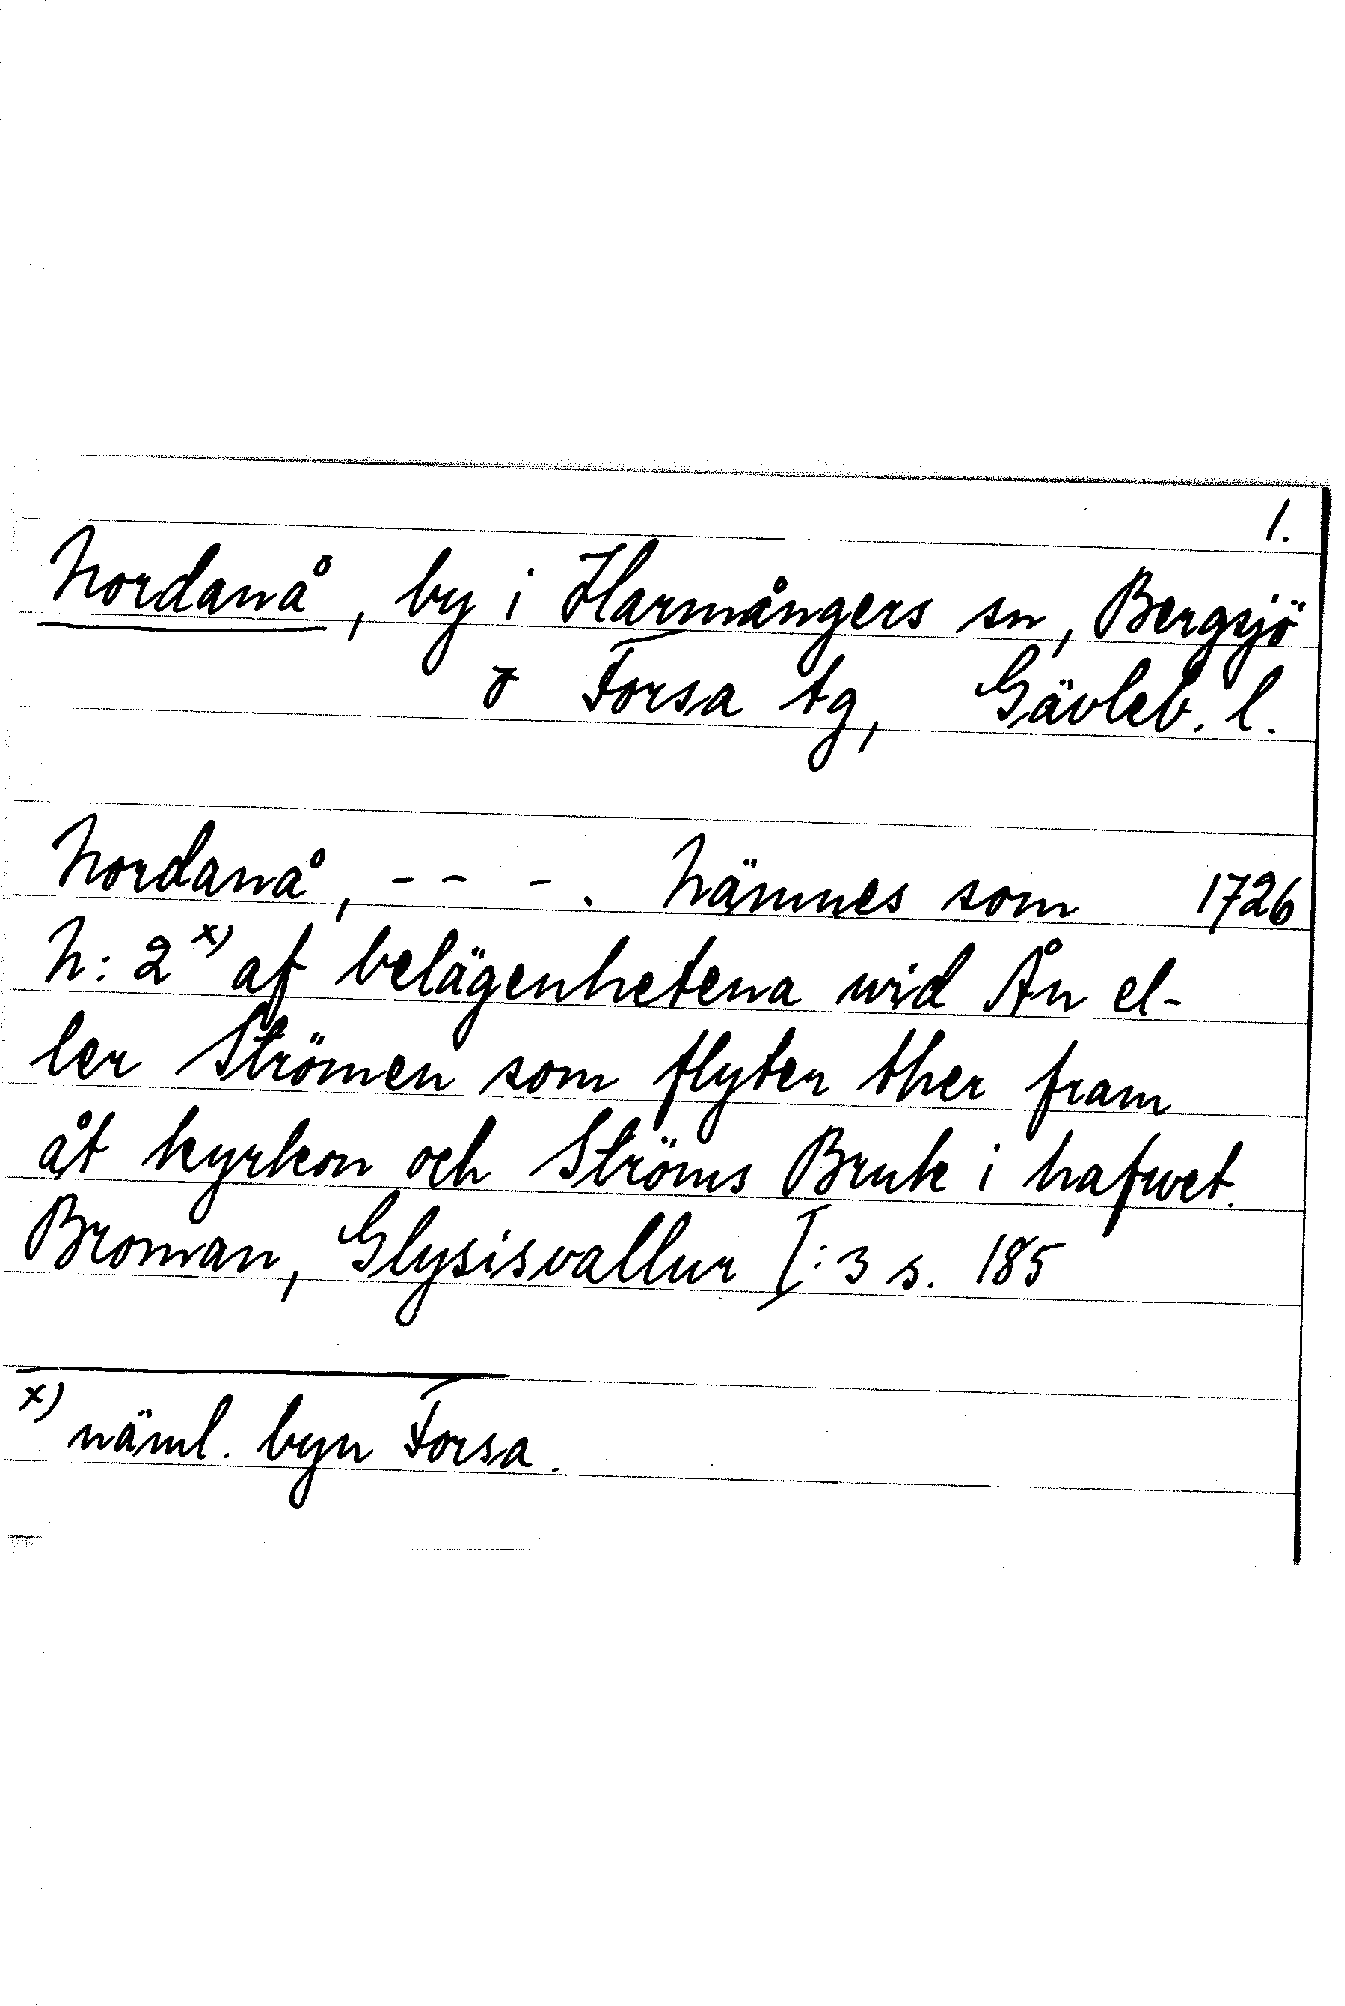 1.
Nordanå, by i Harmångers sn, Bergsjö
o Forsa tg, Gävleb. l.
Nordanå, - - -. Nämnes som 1726
N: 2 x) af belägenhetena wid Ån el-
ler Strömen som flyter ther fram
åt kyrkon och Ströms Bruk i hafwet.
Broman, Glysisvallur I:3 s. 185
x) näml. byn Forsa.